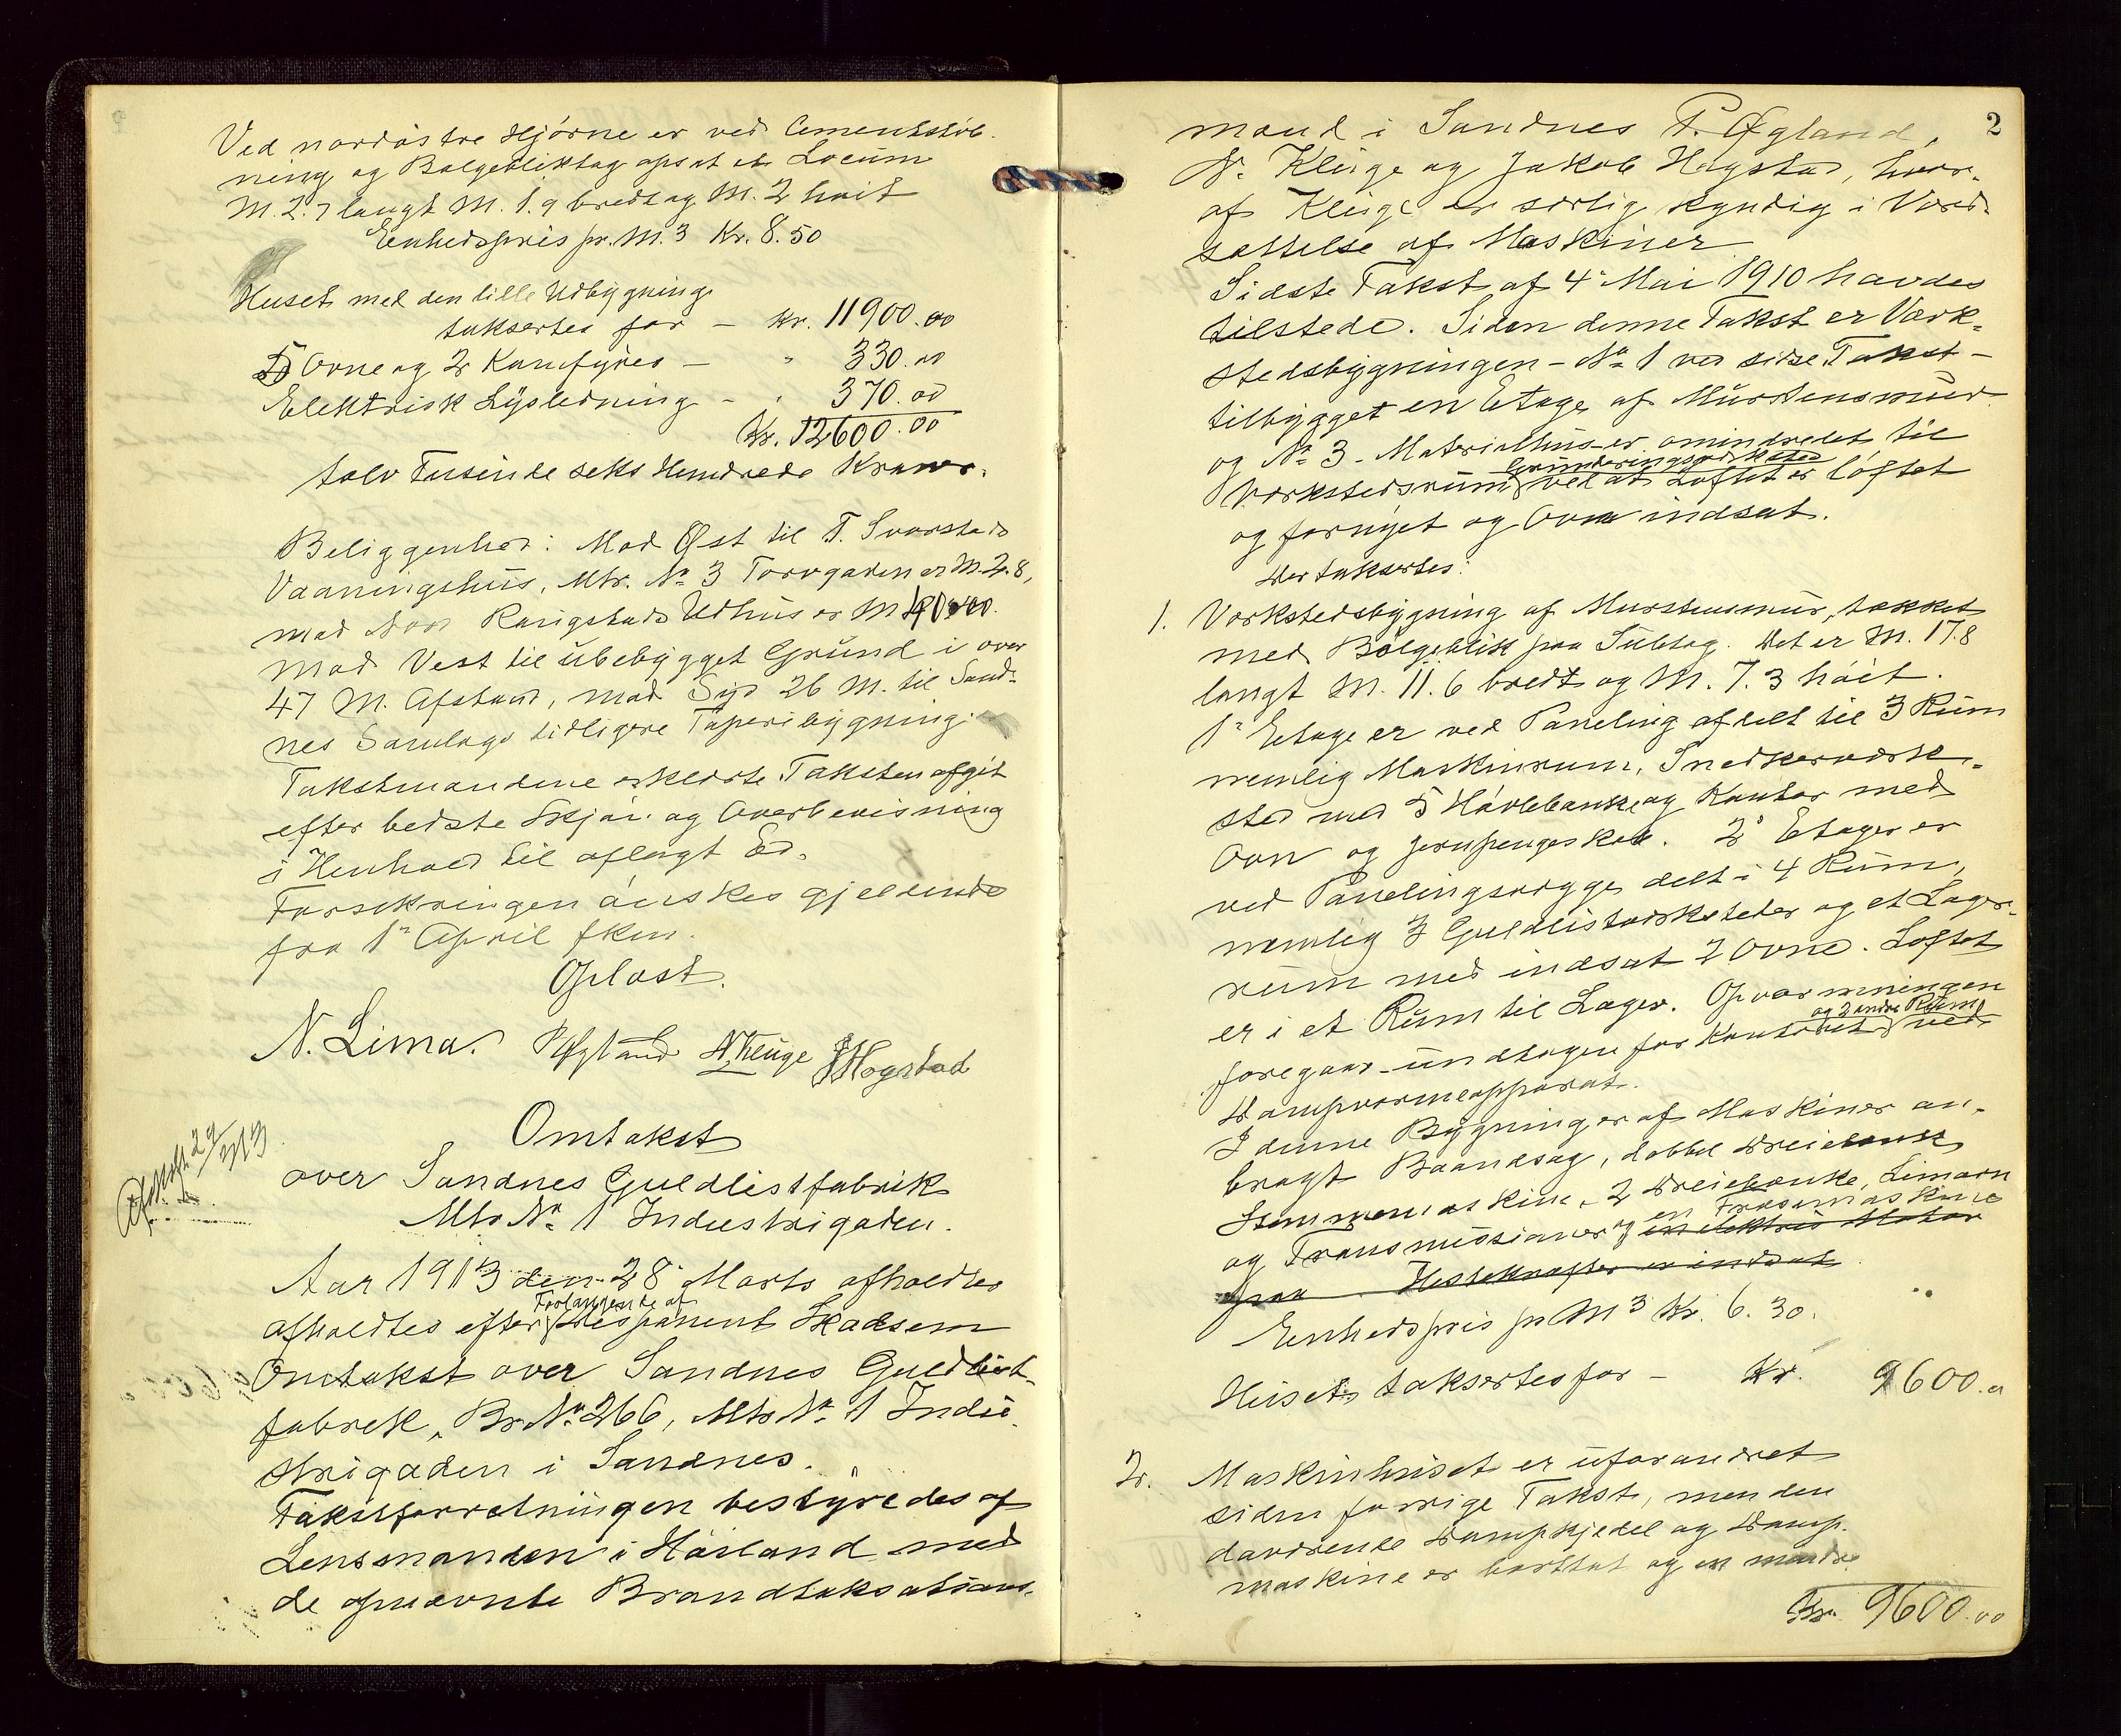 Ved nordöstre Hjörne er ved Cementstöb-
ning og Bølgebliktag opsat et Locum
M. 2.7 langt M. 1.9 bredt og M. 2 høit
Eenhedspris pr. M.3 Kr. 8.50
Huset med den lille Udbygning
taksertes for — Kr. 11900.00
5 Ovne og 2 Komfyrer — " 330.00
Elektrisk Lysledning — " 370.00
Kr. 12600.00
tolv Tusinde seks Hundrede Kroner.
Beliggenhed: Mod Øst til T. Svorstads
Vaaningshus, Mtr. No 3 Torvgaden er M 2.8,
mod Nord Rangstads Udhus er M
Mod Vest til ubebygget Grund i over
47 M. Afstand, mod Syd 26 M. til Sand-
nes Samlags tidligere Taperibygning.
Takstmændene erklærte Taksten afgit
efter bedste Skjøn og Overbevisning
i Henhold til aflagt Ed.
Forsikringen ønskes gjeldende
fra 1ste April fken.
Oplæst.
N. Lima. P Øgland N. Kluge J Hogstad
Omtakst
over Sandnes Guldlistfabrik
Mtr No 1 Industrigaden.
Afskrift 29/3 13
Aar 1913 den 28 Marts afholdtes
afholdtes efter Forlangende af Disponent Skadsem
Omtakst over Sandnes Guldlist-
fabrik, Br. No 266, Mtr No 1 Indu-
strigaden i Sandnes.
Takstforretningen bestyredes af
Lensmanden i Høiland med
de opnævnte Brandtaksations-
2
mænd i Sandnes P. Øgland,
N. Kluge og Jakob Hogstad, hvor-
af Kluge er særlig kyndig i Værd-
sættelse af Maskiner
Sidste Takst af 4 Mai 1910 havdes
tilstede. Siden denne Takst er Værk-
stedsbygningen - No 1 ved sidse Takst -
tilbygget en Etage af Murstensmur
og No 3 - Materialhus - er omindredet til
Værkstedsrum Grunderingsværksted ved at Loftet er løftet
og fornyet og Ovn indsat.
Der taksertes:
1. Værkstedsbygning af Murstensmur, tækket
med Bølgeblik paa Sutag. Det er M. 17.8
langt M. 11.6 bredt og M. 7.3 høit.
1ste Etage er ved Paneling afdelt til 3 Rum
nemlig Maskinrum, Snedkerværk-
sted med 5 Høvlebænke og Kontor med
Ovn og jernpengeskab. 2den Etage er
ved Panelingsvægge delt i 4 Rum,
nemlig 3 Guldlistværksteder og et Lager-
rum med indsat 2 Ovne. Loftet
er i et Rum til Lager. Opvarmningen
foregaar - undtagen for Kontoret og 2 andre Rum ved
Dampvarmeapparat.
I denne Bygning er af Maskiner an-
bragt Baandsag, dobbel Dreiebænk
Stemmemaskine, 2 Dreiebænke, Limovn
og Transmissioner og en Fræsemaskine en elektris Motor
paa Hestekræfter er indsat
Eenhedspris pr M3 Kr. 6.30.
Huset taksertes for — Kr. 9600.00
2. Maskinhuset er uforandret
siden forrige Takst, men den
daværende Dampkjedel og Damp-
maskine er borttat og en mindre
Kr. 9600.00